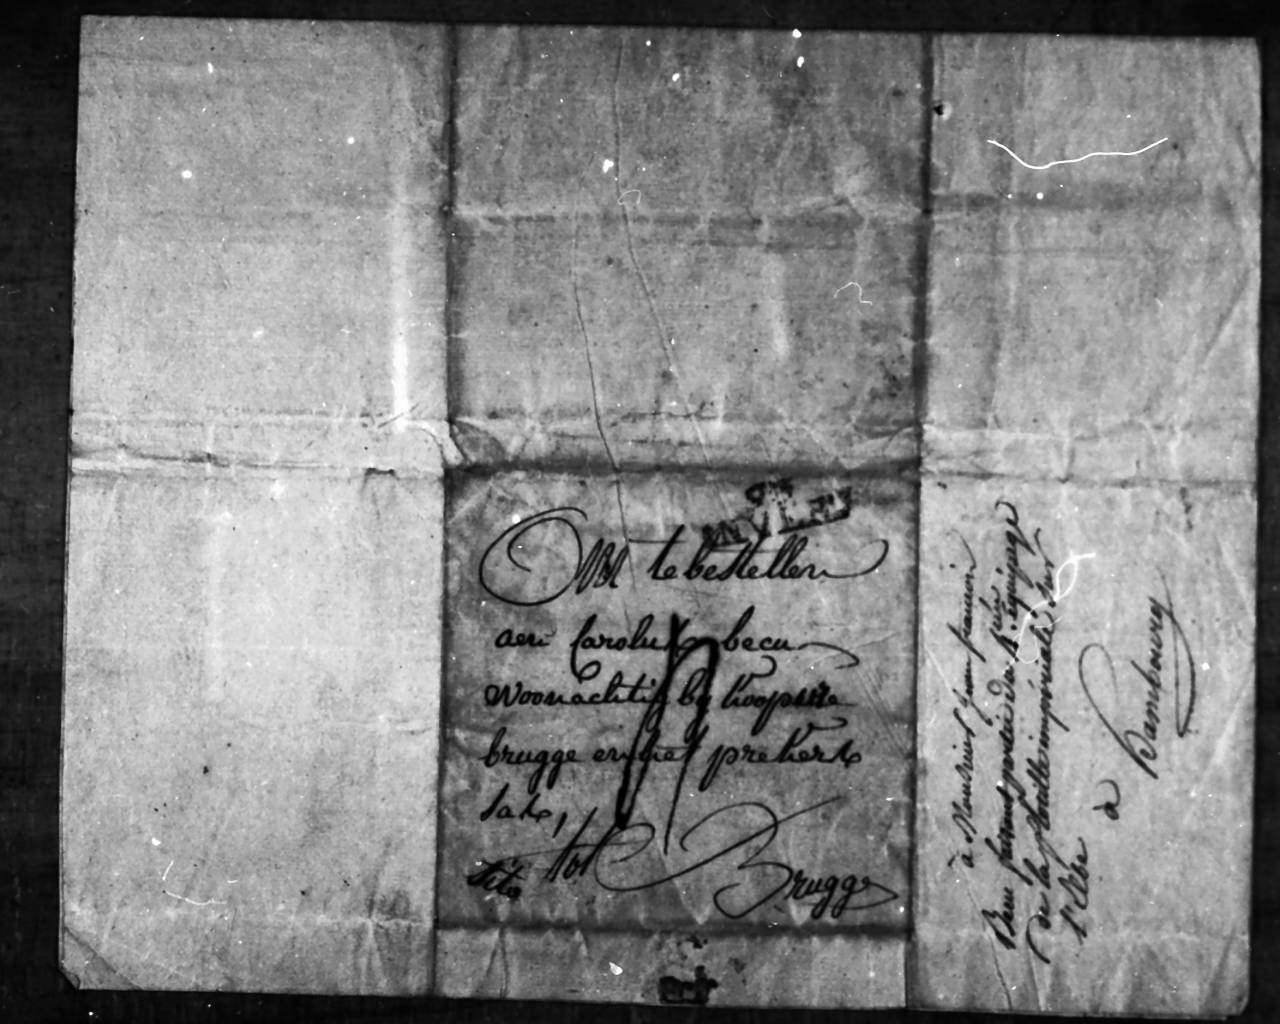 Om te bestellen
aen Carolus becu
woonachtig by koopma
brugge en het prekers
Sas,
Cito tot Brugge
à Monsieur jean francois
Becu faisant partie du 1er équipage
de la flotille impériale sur
l'Elbe
à Hambourg